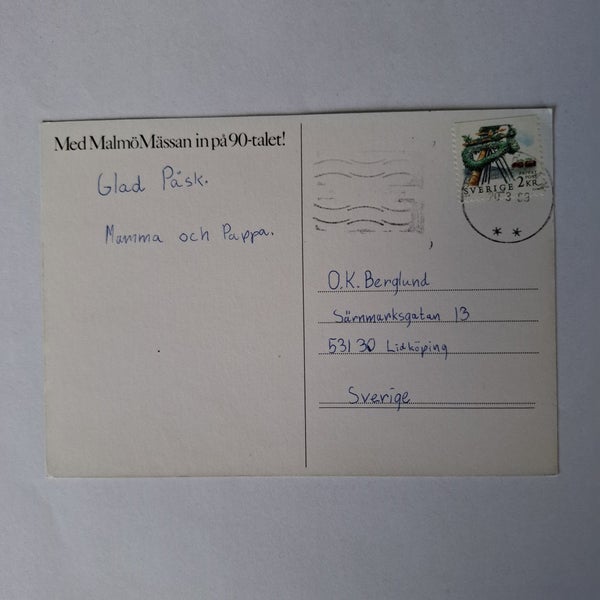 Med MalmöMässan in på 90-talet!
Glad Påsk.
Mamma och Pappa.
SVERIGE 2 KR
O.K. Berglund
Särnmarksgatan 13
531 30 Lidköping
Sverige